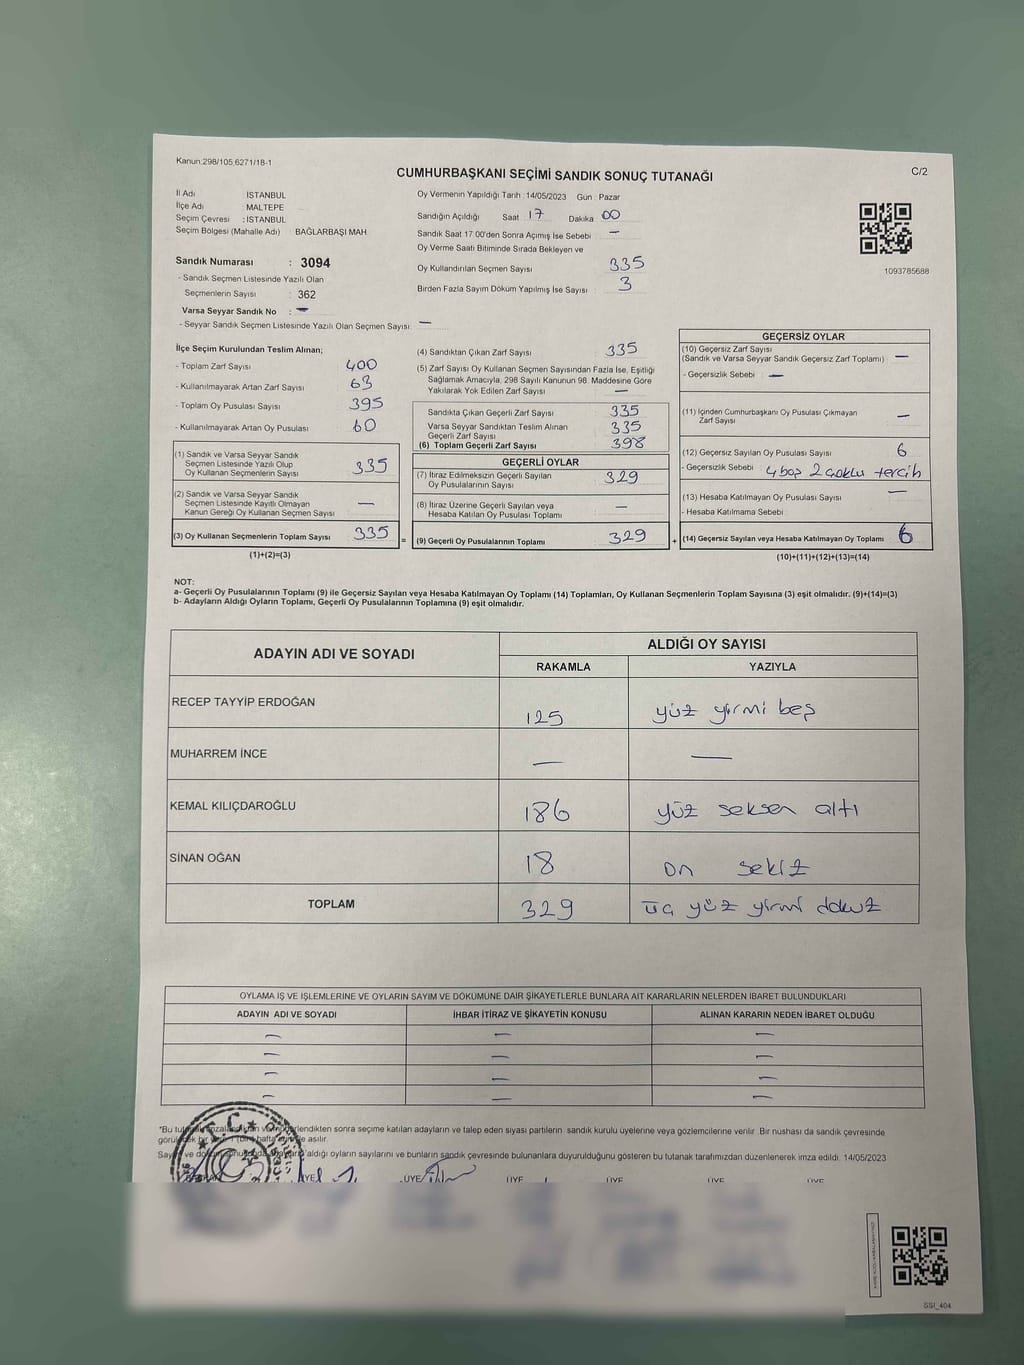 Kanun:298/105,6271/18-1
CUMHURBAŞKANI SEÇİMİ SANDIK SONUÇ TUTANAĞI
C/2
İl Adı İSTANBUL
İlçe Adı MALTEPE
Seçim Çevresi : İSTANBUL
Seçim Bölgesi (Mahalle Adı) : BAĞLARBAŞI MAH
Sandık Numarası : 3094
- Sandık Seçmen Listesinde Yazılı Olan
Seçmenlerin Sayısı : 362
Varsa Seyyar Sandık No : —
- Seyyar Sandık Seçmen Listesinde Yazılı Olan Seçmen Sayısı : —
Oy Vermenin Yapıldığı Tarih : 14/05/2023 Gün : Pazar
Sandığın Açıldığı Saat 17 Dakika 00
Sandık Saat 17 00'den Sonra Açımış İse Sebebi : —
Oy Verme Saati Bitiminde Sırada Bekleyen ve
Oy Kullandırılan Seçmen Sayısı : 335
Birden Fazla Sayım Döküm Yapılmış İse Sayısı : 3
1093785688
İlçe Seçim Kurulundan Teslim Alınan;
- Toplam Zarf Sayısı : 400
- Kullanılmayarak Artan Zarf Sayısı : 63
- Toplam Oy Pusulası Sayısı : 395
- Kullanılmayarak Artan Oy Pusulası : 60
(1) Sandık ve Varsa Seyyar Sandık
Seçmen Listesinde Yazılı Olup
Oy Kullanan Seçmenlerin Sayısı : 335
(2) Sandık ve Varsa Seyyar Sandık
Seçmen Listesinde Kayıtlı Olmayan
Kanun Gereği Oy Kullanan Seçmen Sayısı : —
(3) Oy Kullanan Seçmenlerin Toplam Sayısı : 335
(1)+(2)=(3)
(4) Sandıktan Çıkan Zarf Sayısı : 335
(5) Zarf Sayısı Oy Kullanan Seçmen Sayısından Fazla İse, Eşitliği
Sağlamak Amacıyla, 298 Sayılı Kanunun 98. Maddesine Göre
Yakılarak Yok Edilen Zarf Sayısı : —
Sandıkta Çıkan Geçerli Zarf Sayısı : 335
Varsa Seyyar Sandıktan Teslim Alınan
Geçerli Zarf Sayısı : 335
(6) Toplam Geçerli Zarf Sayısı : 398
GEÇERLİ OYLAR
(7) İtiraz Edilmeksizin Geçerli Sayılan
Oy Pusulalarının Sayısı : 329
(8) İtiraz Üzerine Geçerli Sayılan veya
Hesaba Katılan Oy Pusulası Toplamı : —
= (9) Geçerli Oy Pusulalarının Toplamı : 329
GEÇERSİZ OYLAR
(10) Geçersiz Zarf Sayısı
(Sandık ve Varsa Seyyar Sandık Geçersiz Zarf Toplamı) : —
- Geçersizlik Sebebi : —
(11) İçinden Cumhurbaşkanı Oy Pusulası Çıkmayan
Zarf Sayısı : —
(12) Geçersiz Sayılan Oy Pusulası Sayısı : 6
- Geçersizlik Sebebi : 4 boş 2 çoklu tercih
(13) Hesaba Katılmayan Oy Pusulası Sayısı : —
- Hesaba Katılmama Sebebi :
+ (14) Geçersiz Sayılan veya Hesaba Katılmayan Oy Toplamı : 6
(10)+(11)+(12)+(13)=(14)
NOT:
a- Geçerli Oy Pusulalarının Toplamı (9) ile Geçersiz Sayılan veya Hesaba Katılmayan Oy Toplamı (14) Toplamları, Oy Kullanan Seçmenlerin Toplam Sayısına (3) eşit olmalıdır. (9)+(14)=(3)
b- Adayların Aldığı Oyların Toplamı, Geçerli Oy Pusulalarının Toplamına (9) eşit olmalıdır.
ADAYIN ADI VE SOYADI
ALDIĞI OY SAYISI
RAKAMLA YAZIYLA
RECEP TAYYİP ERDOĞAN 125 yüz yirmi beş
MUHARREM İNCE — —
KEMAL KILIÇDAROĞLU 186 yüz seksen altı
SİNAN OĞAN 18 on sekiz
TOPLAM 329 üç yüz yirmi dokuz
OYLAMA İŞ VE İŞLEMLERİNE VE OYLARIN SAYIM VE DÖKÜMÜNE DAİR ŞİKAYETLERLE BUNLARA AİT KARARLARIN NELERDEN İBARET BULUNDUKLARI
ADAYIN ADI VE SOYADI İHBAR İTİRAZ VE ŞİKAYETİN KONUSU ALINAN KARARIN NEDEN İBARET OLDUĞU
— — —
— — —
— — —
— — —
*Bu sonra seçime katılan adayların ve talep eden siyasi partilerin sandık kurulu üyelerine veya gözlemcilerine verilir. Bir nüshası da sandık çevresinde
hafta asılır.
ve aldığı oyların sayılarını ve bunların sandık çevresinde bulunanlara duyurulduğunu gösteren bu tutanak tarafımızdan düzenlenerek imza edildi. 14/05/2023
T.C.
ÜYE ÜYE ÜYE ÜYE ÜYE ÜYE
SSI_404